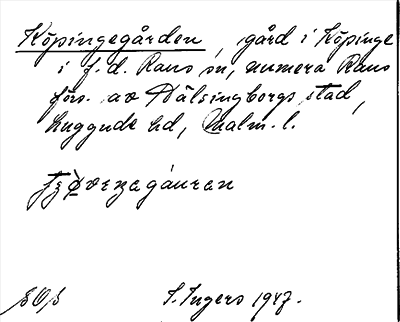 Köpingegården, gård i Köpinge
i f.d. Raus sn, numera Raus
förs. av Hälsingborgs stad,
Luggude hd, Malm. l.
S. Ingers 1947.